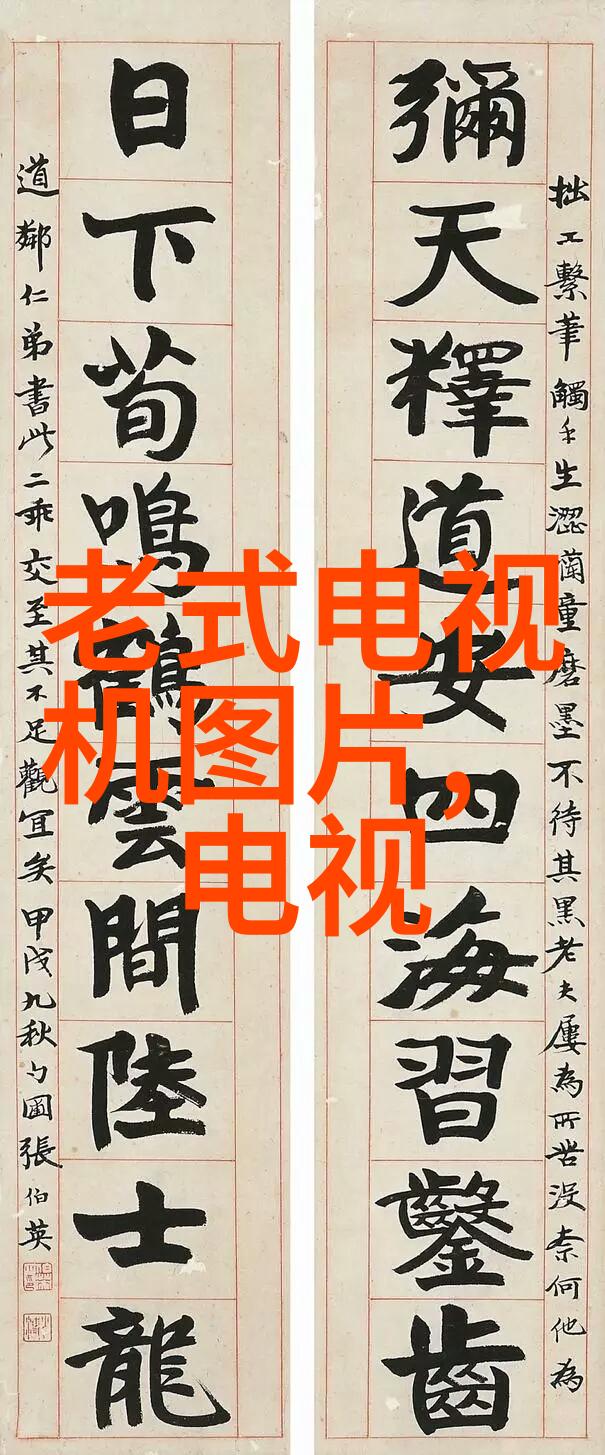 老式电视
机图片,
电视
拙工繫筆觸手生澀童磨墨不待其黑老夫屢為所沒柰何他為
彌天釋道安四海習鑿齒
日下荀鳴鶴雲間陸士龍
道鄰仁弟書此二乖交至其不足觀宜矣甲戌九秋勺圃張伯英